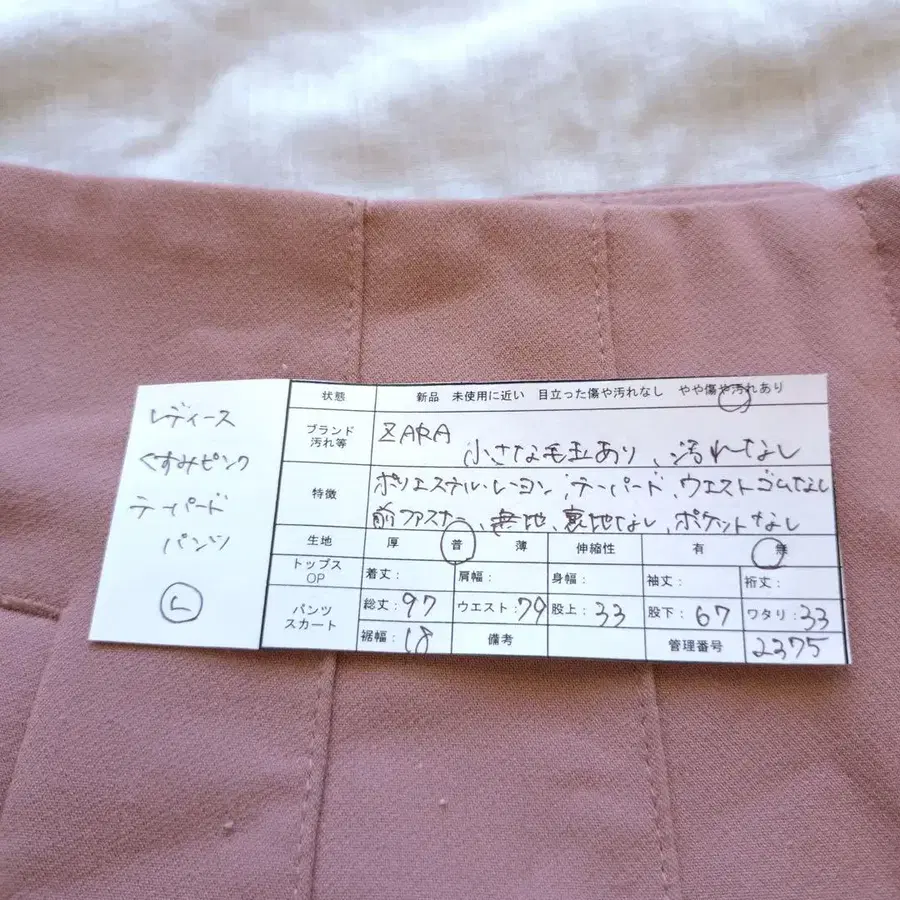 レディース
くすみピンク
テーパード
パンツ
L
状態 新品 未使用に近い 目立った傷や汚れなし やや傷や汚れあり
ブランド 汚れ等 ZARA
小さな毛玉あり、汚れなし
特徴 ポリエステル・レーヨン、テーパード、ウエストゴムなし
前ファスナー、無地、裏地なし、ポケットなし
生地 厚 普 薄 伸縮性 有 無
トップス OP 着丈: 肩幅: 身幅: 袖丈: 裄丈:
パンツ スカート 総丈:97 ウエスト:79 股上:33 股下:67 ワタリ:33
裾幅:18 備考 管理番号 2375